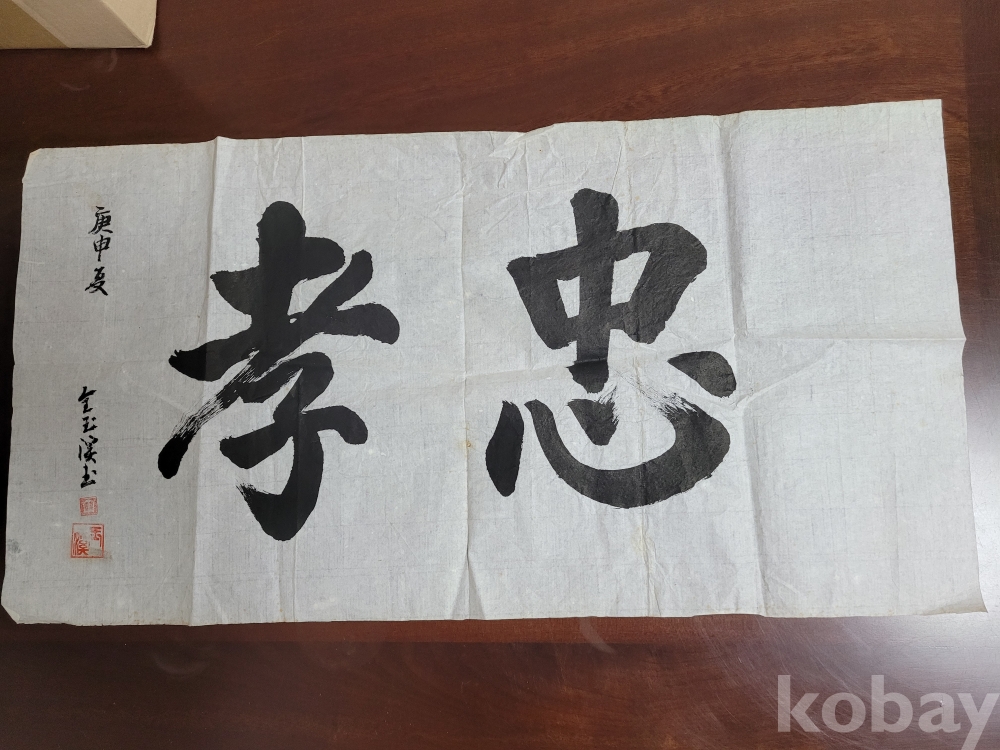 忠孝
庚申夏
金玉溪书
玉溪
kobay